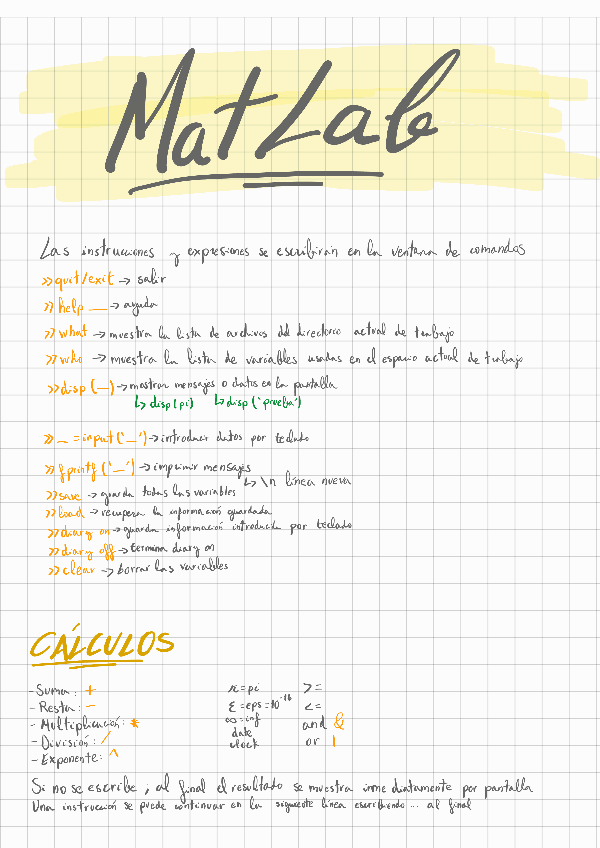 MatLab
Las instrucciones y expresiones se escribirán en la ventana de comandos
>> quit/exit → salir
>> help __ → ayuda
>> what → muestra la lista de archivos del directorio actual de trabajo
>> who → muestra la lista de variables usadas en el espacio actual de trabajo
>> disp (—) → mostrar mensajes o datos en la pantalla
↳ disp(pi) ↳ disp('prueba')
>> _ = input('_') → introducir datos por teclado
>> fprintf('_') → imprimir mensajes
↳ \n línea nueva
>> save → guarda todas las variables
>> load → recupera la información guardada
>> diary on → guarda información introducida por teclado
>> diary off → termina diary on
>> clear → borrar las variables
CÁLCULOS
- Suma: +
- Resta: -
- Multiplicación: *
- División: /
- Exponente: ^
π = pi
ε = eps = 10^-16
∞ = inf
date
clock
>=
<=
and &
or |
Si no se escribe ; al final el resultado se muestra inmediatamente por pantalla
Una instrucción se puede continuar en la siguiente línea escribiendo ... al final